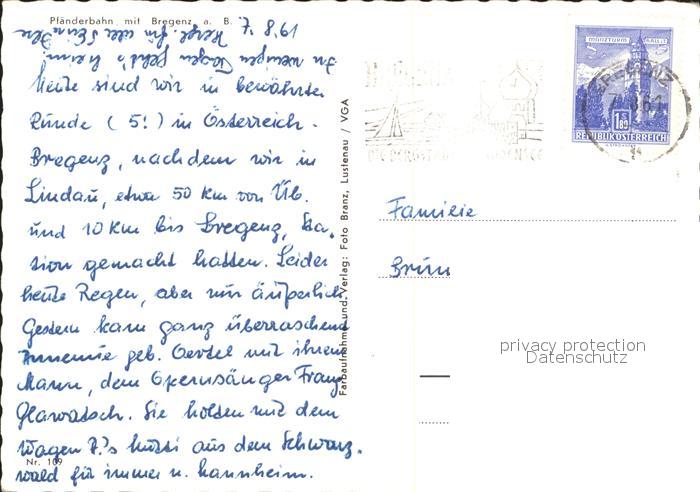 Pfänderbahn mit Bregenz a. B.
19/8. 7.
In wenigen Tagen geht's heim.
Heute sind wir in bewährter
Runde (5!) in Österreich.
Bregenz, nachdem wir in
Lindau, etwa 50 km von Üb.
und 10 km bis Bregenz, Sta-
tion gemacht hatten. Leider
heute Regen, aber nur äußerlich
Gestern kam ganz überraschend
Annemie geb. Oertel mit ihrem
Mann, dem Opernsänger Franz
Glawatsch. Sie holten mit dem
Wagen aus dem Schwarz-
wald für immer n. Mannheim.
Nr. 109
Farbaufnahme und Verlag: Foto Branz, Lustenau / VGA
MÜNZTURM HALL i. T.
1.80
REPUBLIK ÖSTERREICH
BREGENZ
Familie
Brün
privacy protection
Datenschutz